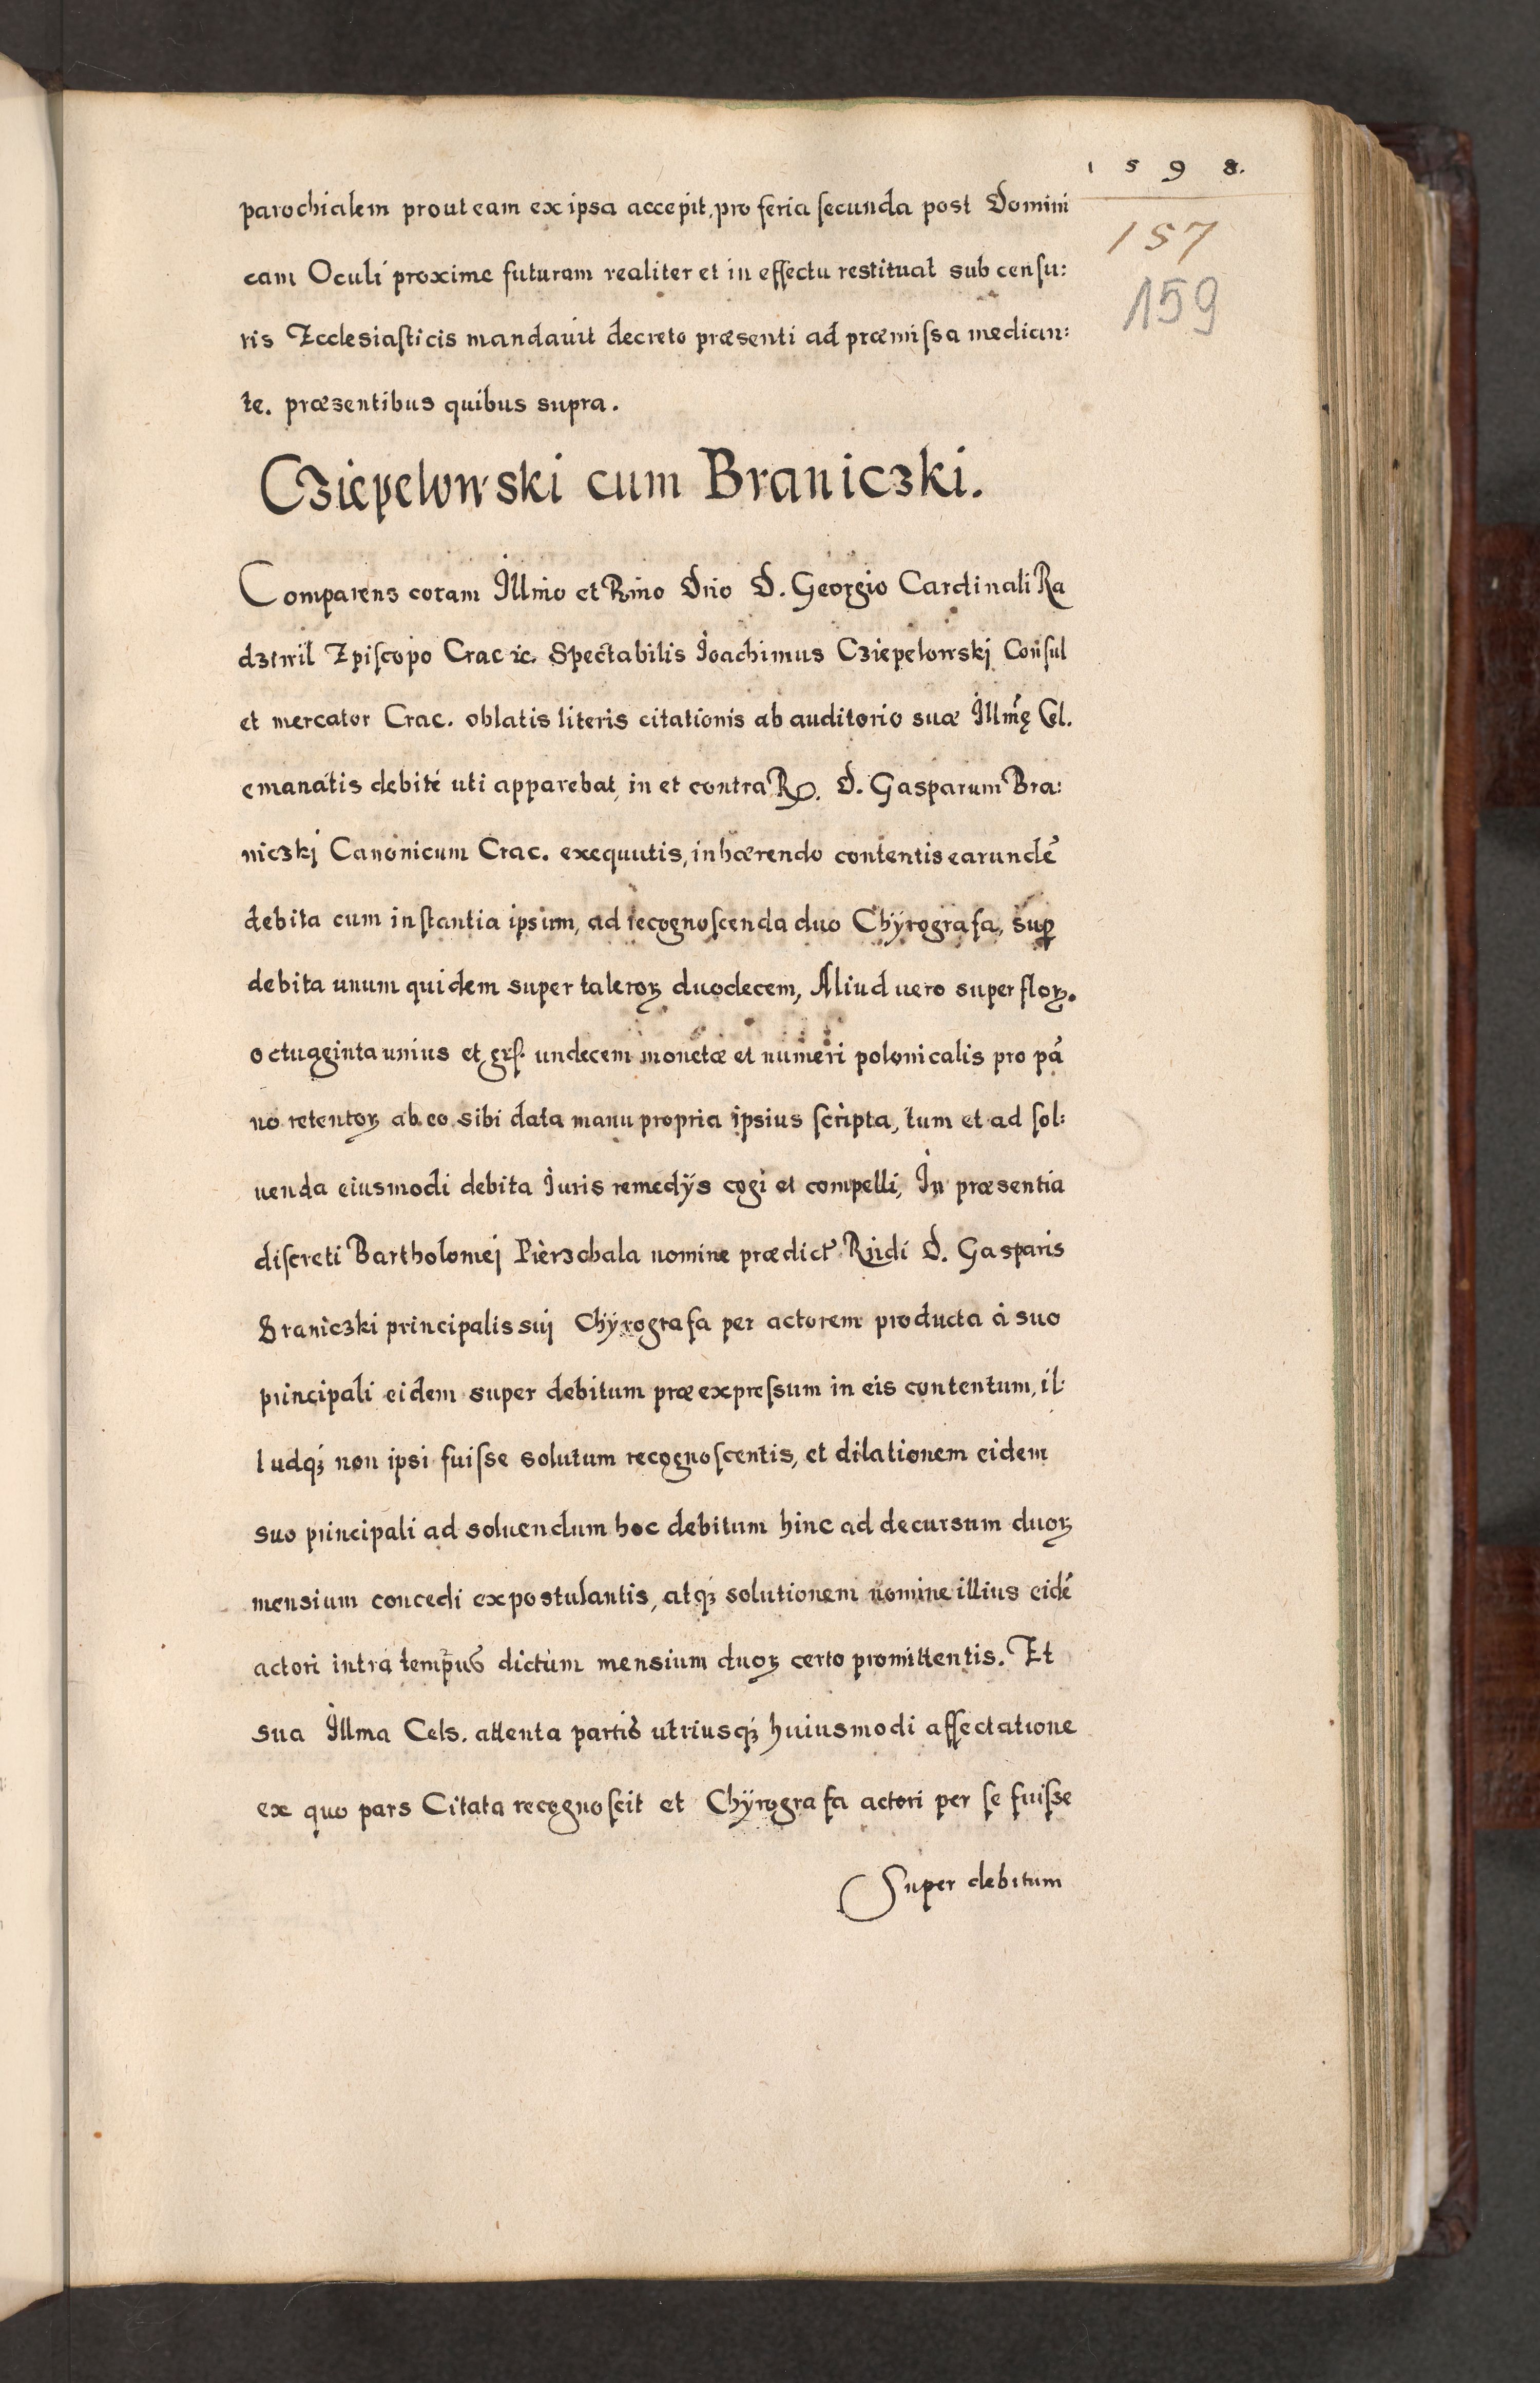 1598.
157
159
parochialem prout eam ex ipsa accepit, pro feria secunda post Domini
cam Oculi proxime futuram realiter et in effectu restituat sub censu:
ris Ecclesiasticis mandavit decreto præsenti ad præmissa median:
te. præsentibus quibus supra.
Cziepelowski cum Braniczki.
Comparens coram Illmo et Rmo Dno D. Georgio Cardinali Ra
dziwil Episcopo Crac ꝛc. Spectabilis Joachimus Cziepelowskj Consul
et mercator Crac. oblatis literis citationis ab auditorio suæ Illmę Cel.
emanatis debité uti apparebat, in et contra R. D. Gasparum Bra:
niczkj Canonicum Crac. exequutis, inhærendo contentis earundē
debita cum instantia ipsum, ad recognoscenda duo Chÿrografa, sup̱
debita unum quidem super taleroꝝ duodecem, Aliud vero super floꝝ.
octuaginta unius et grſ. undecem monetæ et numeri polonicalis pro pā
no retentoꝝ ab eo sibi data manu propria ipsius scripta, tum et ad sol:
uenda eiusmodi debita Juris remedÿs cogi et compelli, In præsentia
discreti Bartholomej Pierzchala nomine prædict Rndi D. Gasparis
Braniczki principalis suj Chÿrografa per actorem producta à suo
principali eidem super debitum præexpressum in eis contentum, il:
ludqꝫ non ipsi fuisse solutum recognoscentis, et dilationem eidem
suo principali ad soluendum hoc debitum hinc ad decursum duoꝝ
mensium concedi expostulantis, atqꝫ solutionem nomine illius eidē
actori intra tempus dictum mensium duoꝝ certo promittentis. Et
sua Illma Cels. attenta partis utriusqꝫ huiusmodi affectatione
ex quo pars Citata recognoscit et Chÿrografa actori per se fuisse
Super debitum